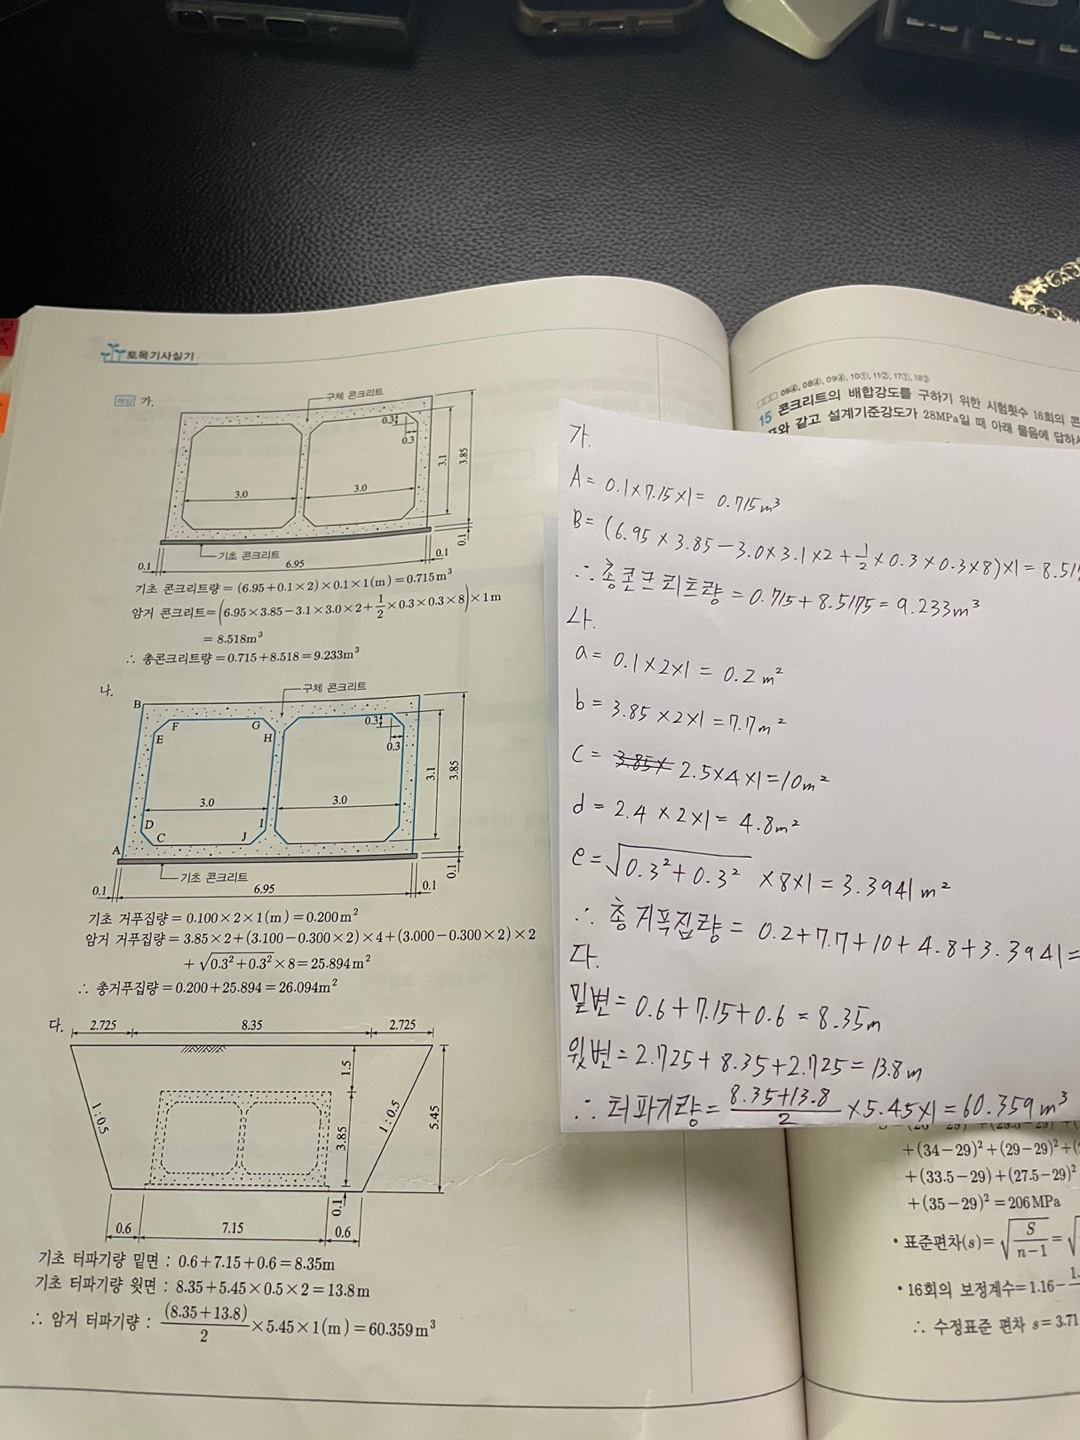 토목기사실기
해답 가.
구체 콘크리트
0.3
0.3
3.0
3.0
3.1
3.85
0.1
기초 콘크리트
0.1
6.95
0.1
기초 콘크리트량 = (6.95+0.1×2)×0.1×1(m) = 0.715m³
암거 콘크리트 = (6.95×3.85-3.1×3.0×2+1/2×0.3×0.3×8)×1m
= 8.518m³
∴ 총콘크리트량 = 0.715+8.518 = 9.233m³
나.
구체 콘크리트
B
F
G
E
H
0.3
0.3
3.0
3.0
3.1
3.85
D
I
C
J
A
0.1
기초 콘크리트
0.1
6.95
0.1
기초 거푸집량 = 0.100×2×1(m) = 0.200m²
암거 거푸집량 = 3.85×2+(3.100-0.300×2)×4+(3.000-0.300×2)×2
+√0.3²+0.3²×8 = 25.894m²
∴ 총거푸집량 = 0.200+25.894 = 26.094m²
다.
2.725
8.35
2.725
1.5
1:0.5
1:0.5
3.85
5.45
0.1
0.6
7.15
0.6
기초 터파기량 밑면 : 0.6+7.15+0.6 = 8.35m
기초 터파기량 윗면 : 8.35+5.45×0.5×2 = 13.8m
∴ 암거 터파기량 : (8.35+13.8)/2×5.45×1(m) = 60.359m³
06④, 08④, 09④, 10①, 11②, 17①, 18③
15 콘크리트의 배합강도를 구하기 위한 시험횟수 16회의 콘
표와 같고 설계기준강도가 28MPa일 때 아래 물음에 답하시
가.
A = 0.1×7.15×1 = 0.715m³
B = (6.95×3.85-3.0×3.1×2+1/2×0.3×0.3×8)×1 = 8.51
∴ 총콘크리트량 = 0.715+8.5175 = 9.233m³
나.
a = 0.1×2×1 = 0.2m²
b = 3.85×2×1 = 7.7m²
c = 3.85× 2.5×4×1 = 10m²
d = 2.4×2×1 = 4.8m²
e = √0.3²+0.3² ×8×1 = 3.3941m²
∴ 총거푸집량 = 0.2+7.7+10+4.8+3.3941 =
다.
밑변 = 0.6+7.15+0.6 = 8.35m
윗변 = 2.725+8.35+2.725 = 13.8m
∴ 터파기량 = 8.35+13.8/2 ×5.45×1 = 60.359m³
+(34-29)²+(29-29)²+
+(33.5-29)+(27.5-29)²
+(35-29)² = 206MPa
• 표준편차(s) = √S/n-1 = √
• 16회의 보정계수 = 1.16-
∴ 수정표준 편차 s = 3.71